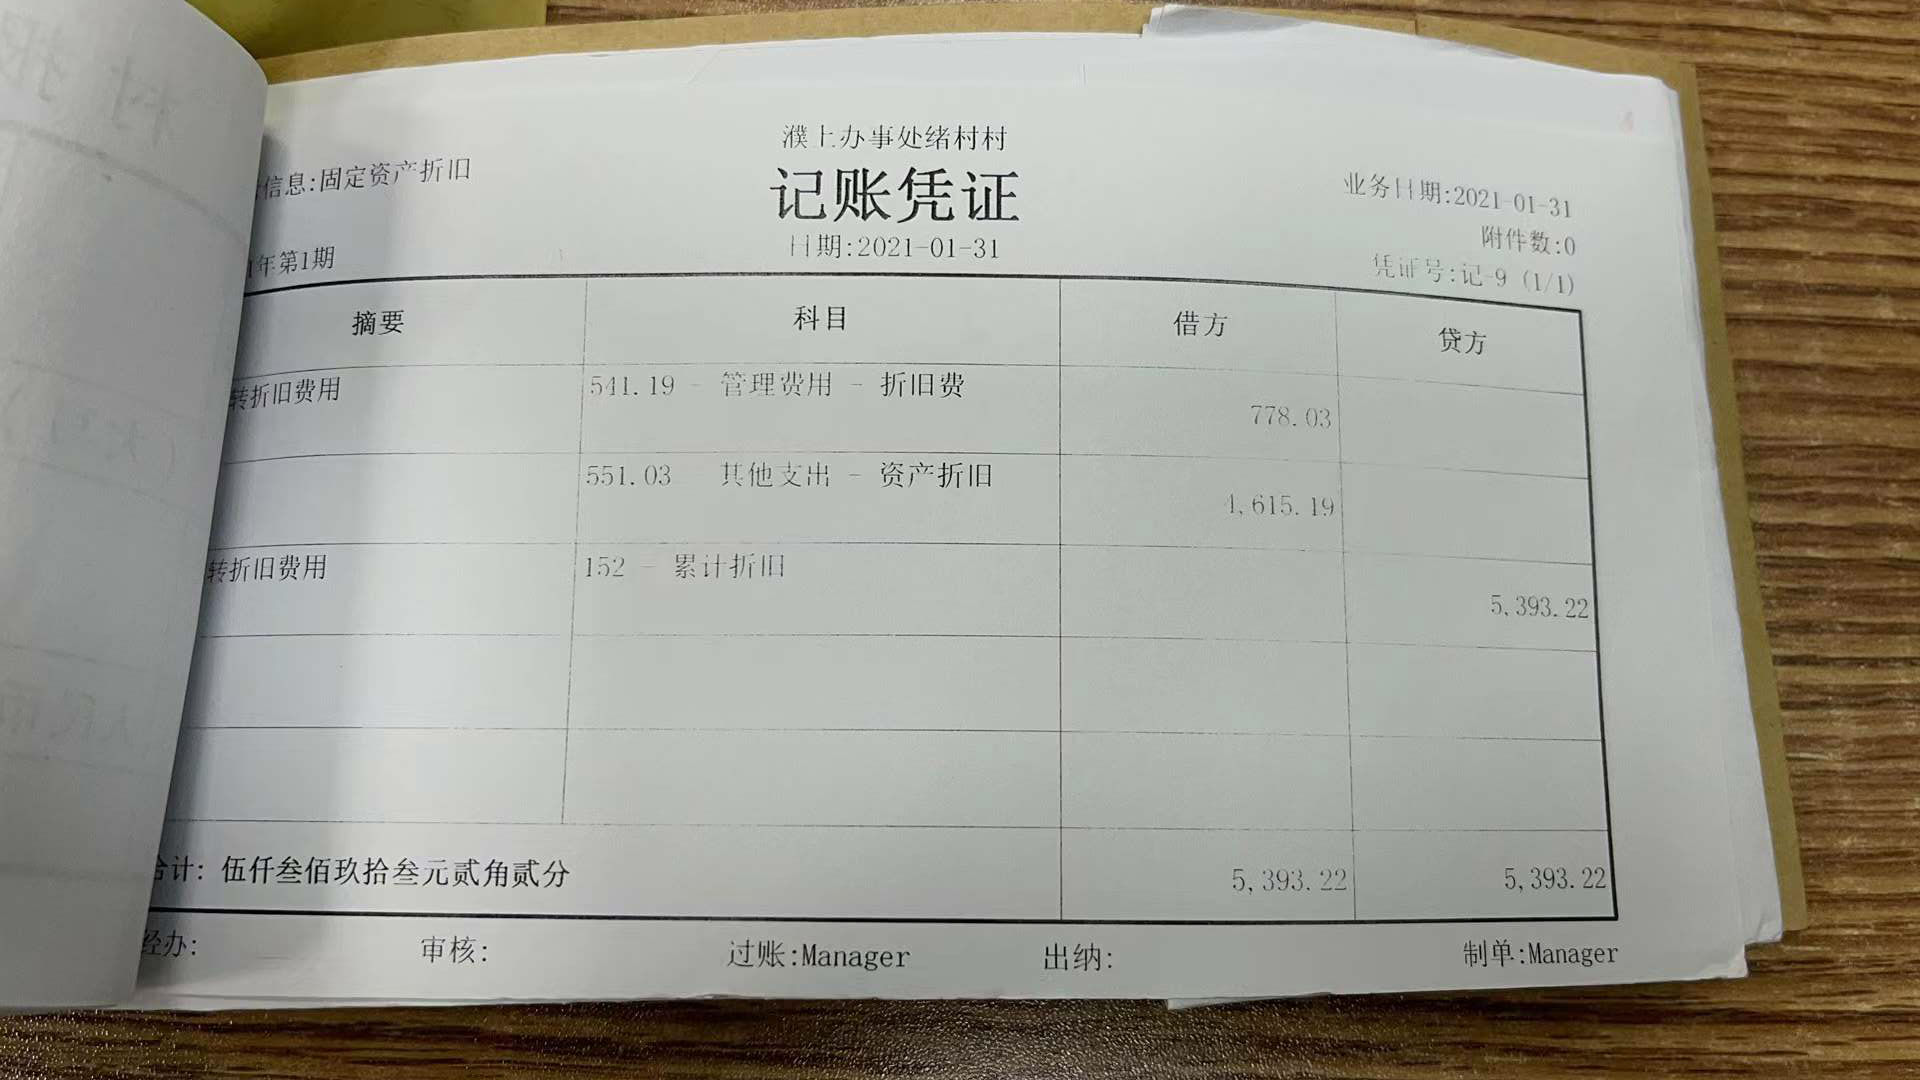 濮上办事处绪村村
信息:固定资产折旧
记账凭证
业务日期:2021-01-31
日期:2021-01-31
附件数:0
年第1期
凭证号:记-9 (1/1)
摘要 科目 借方 贷方
转折旧费用 541.19 - 管理费用 - 折旧费 778.03
551.03 其他支出 - 资产折旧 4,615.19
转折旧费用 152 - 累计折旧 5,393.22
合计: 伍仟叁佰玖拾叁元贰角贰分 5,393.22 5,393.22
经办: 审核: 过账:Manager 出纳: 制单:Manager